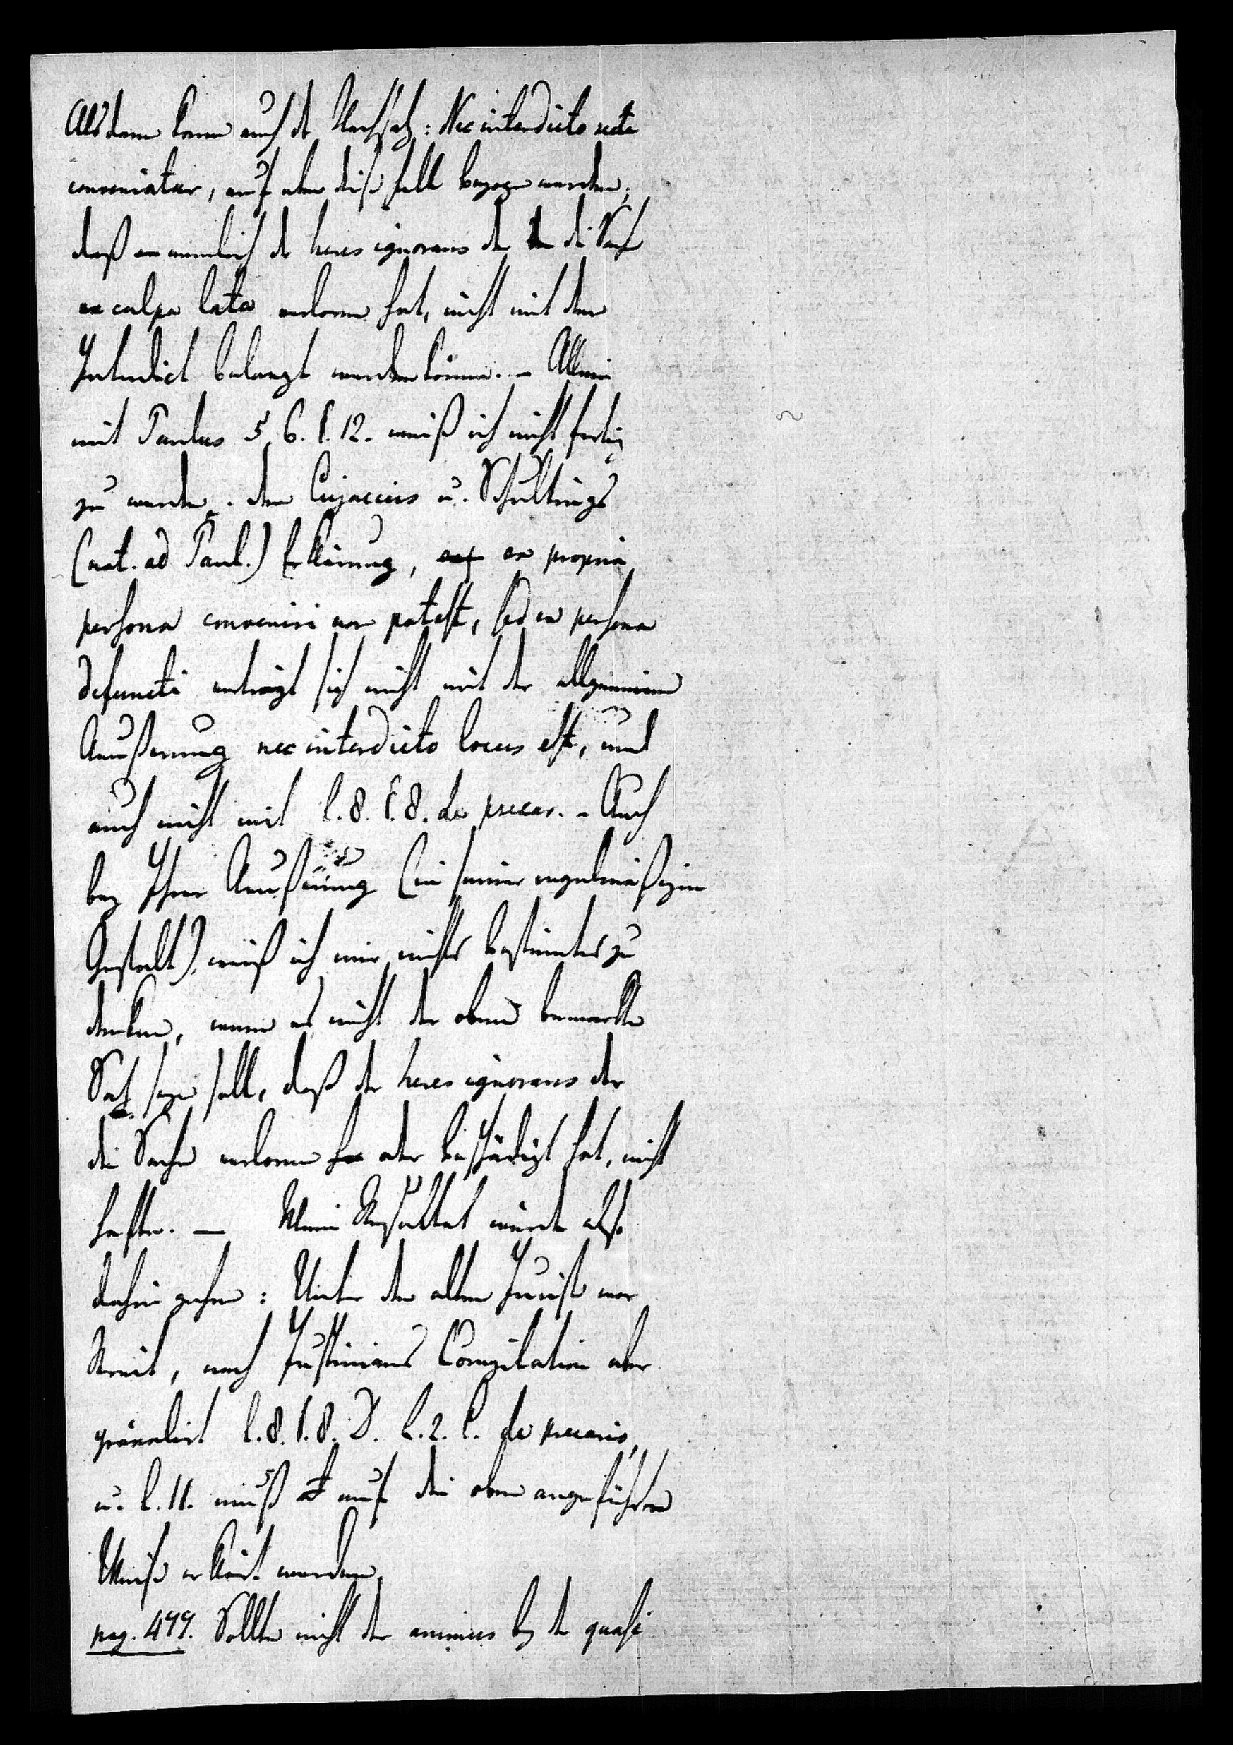 Alsdann kann auch der Nachsatz: Nec interdicto recte
conveniatur, auf eben diesen Fall bezogen werden,
daß nemlich der heres ignorans der die Sache
ex culpa lata verloren hat, nicht mit dem
Interdict belangt werden könne. – Allein
mit Paulus 5, 6. §. 12. weiß ich nicht fertig
zu werden. den Cujaccius u. Schultings
(not. ad Paul.) Erklärung, ex propria
persona conveniri non potest, sed ex persona
defuncti verträgt sich nicht mit der allgemeinen
Aeußerung nec interdicto locus est, und
auch nicht mit l. 8. §. 8. de precar. – Auch
bey Ihrer Aeußerung (in seiner regelmäßigen
Gestalt) weiß ich mir nichts bestimmtes zu
denken, wenn es nicht der oben bemerkte
Satz seyn soll, daß der heres ignorans der
die Sache verloren oder beschädigt hat, nicht
hafte. — Mein Resultat würde also
dahin gehen: Unter den alten Jurist. war
Streit, nach Justinians Compilation aber
l. 8. §. 8. D. L. 2. C. de precario,
u. l. 11. muß auf die oben angeführte
Weise erklärt werden.
pag. 499. Sollte nicht der animus bey der quasi